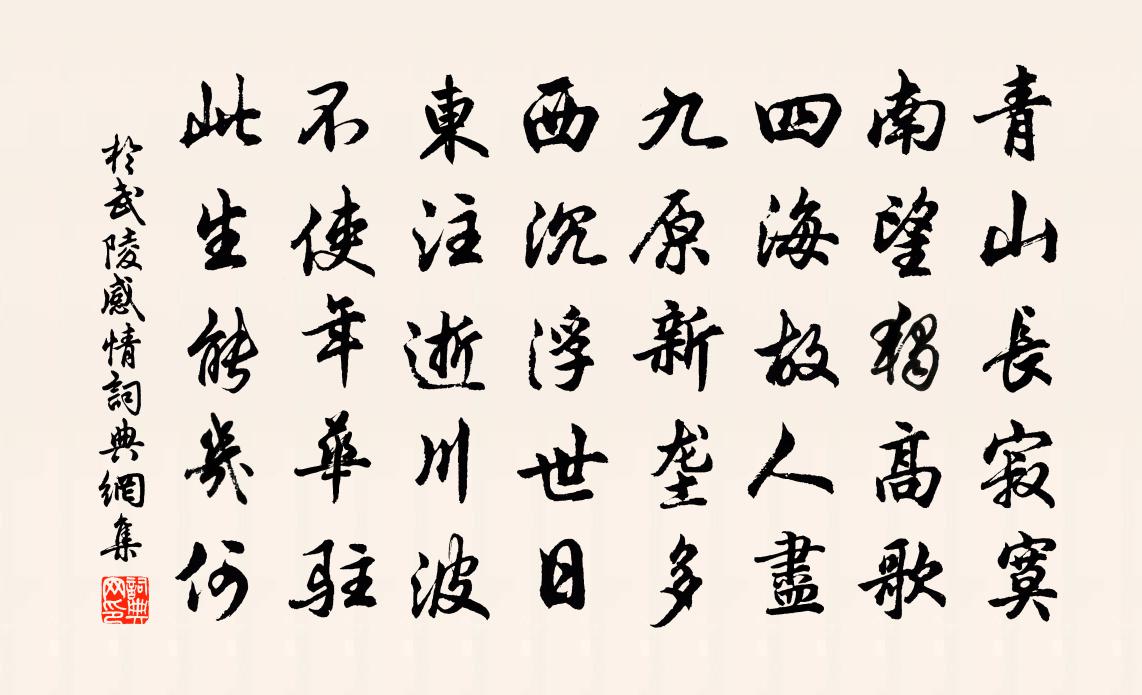 青山長寂寞
南望獨高歌
四海故人盡
九原新垄多
西沉浮世日
東注逝川波
不使年華駐
此生能幾何
於武陵感情詞典網集
詞典网印